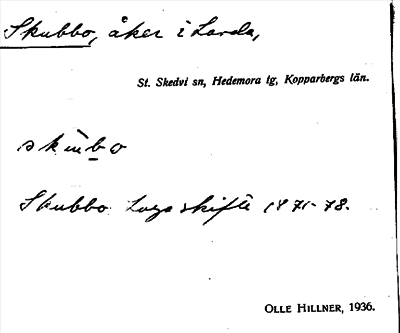 Skubbo, åker i Landa,
St. Skedvi sn, Hedemora tg, Kopparbergs län.
skùbo
Skubbo Laga skifte 1871-78.
OLLE HILLNER, 1936.